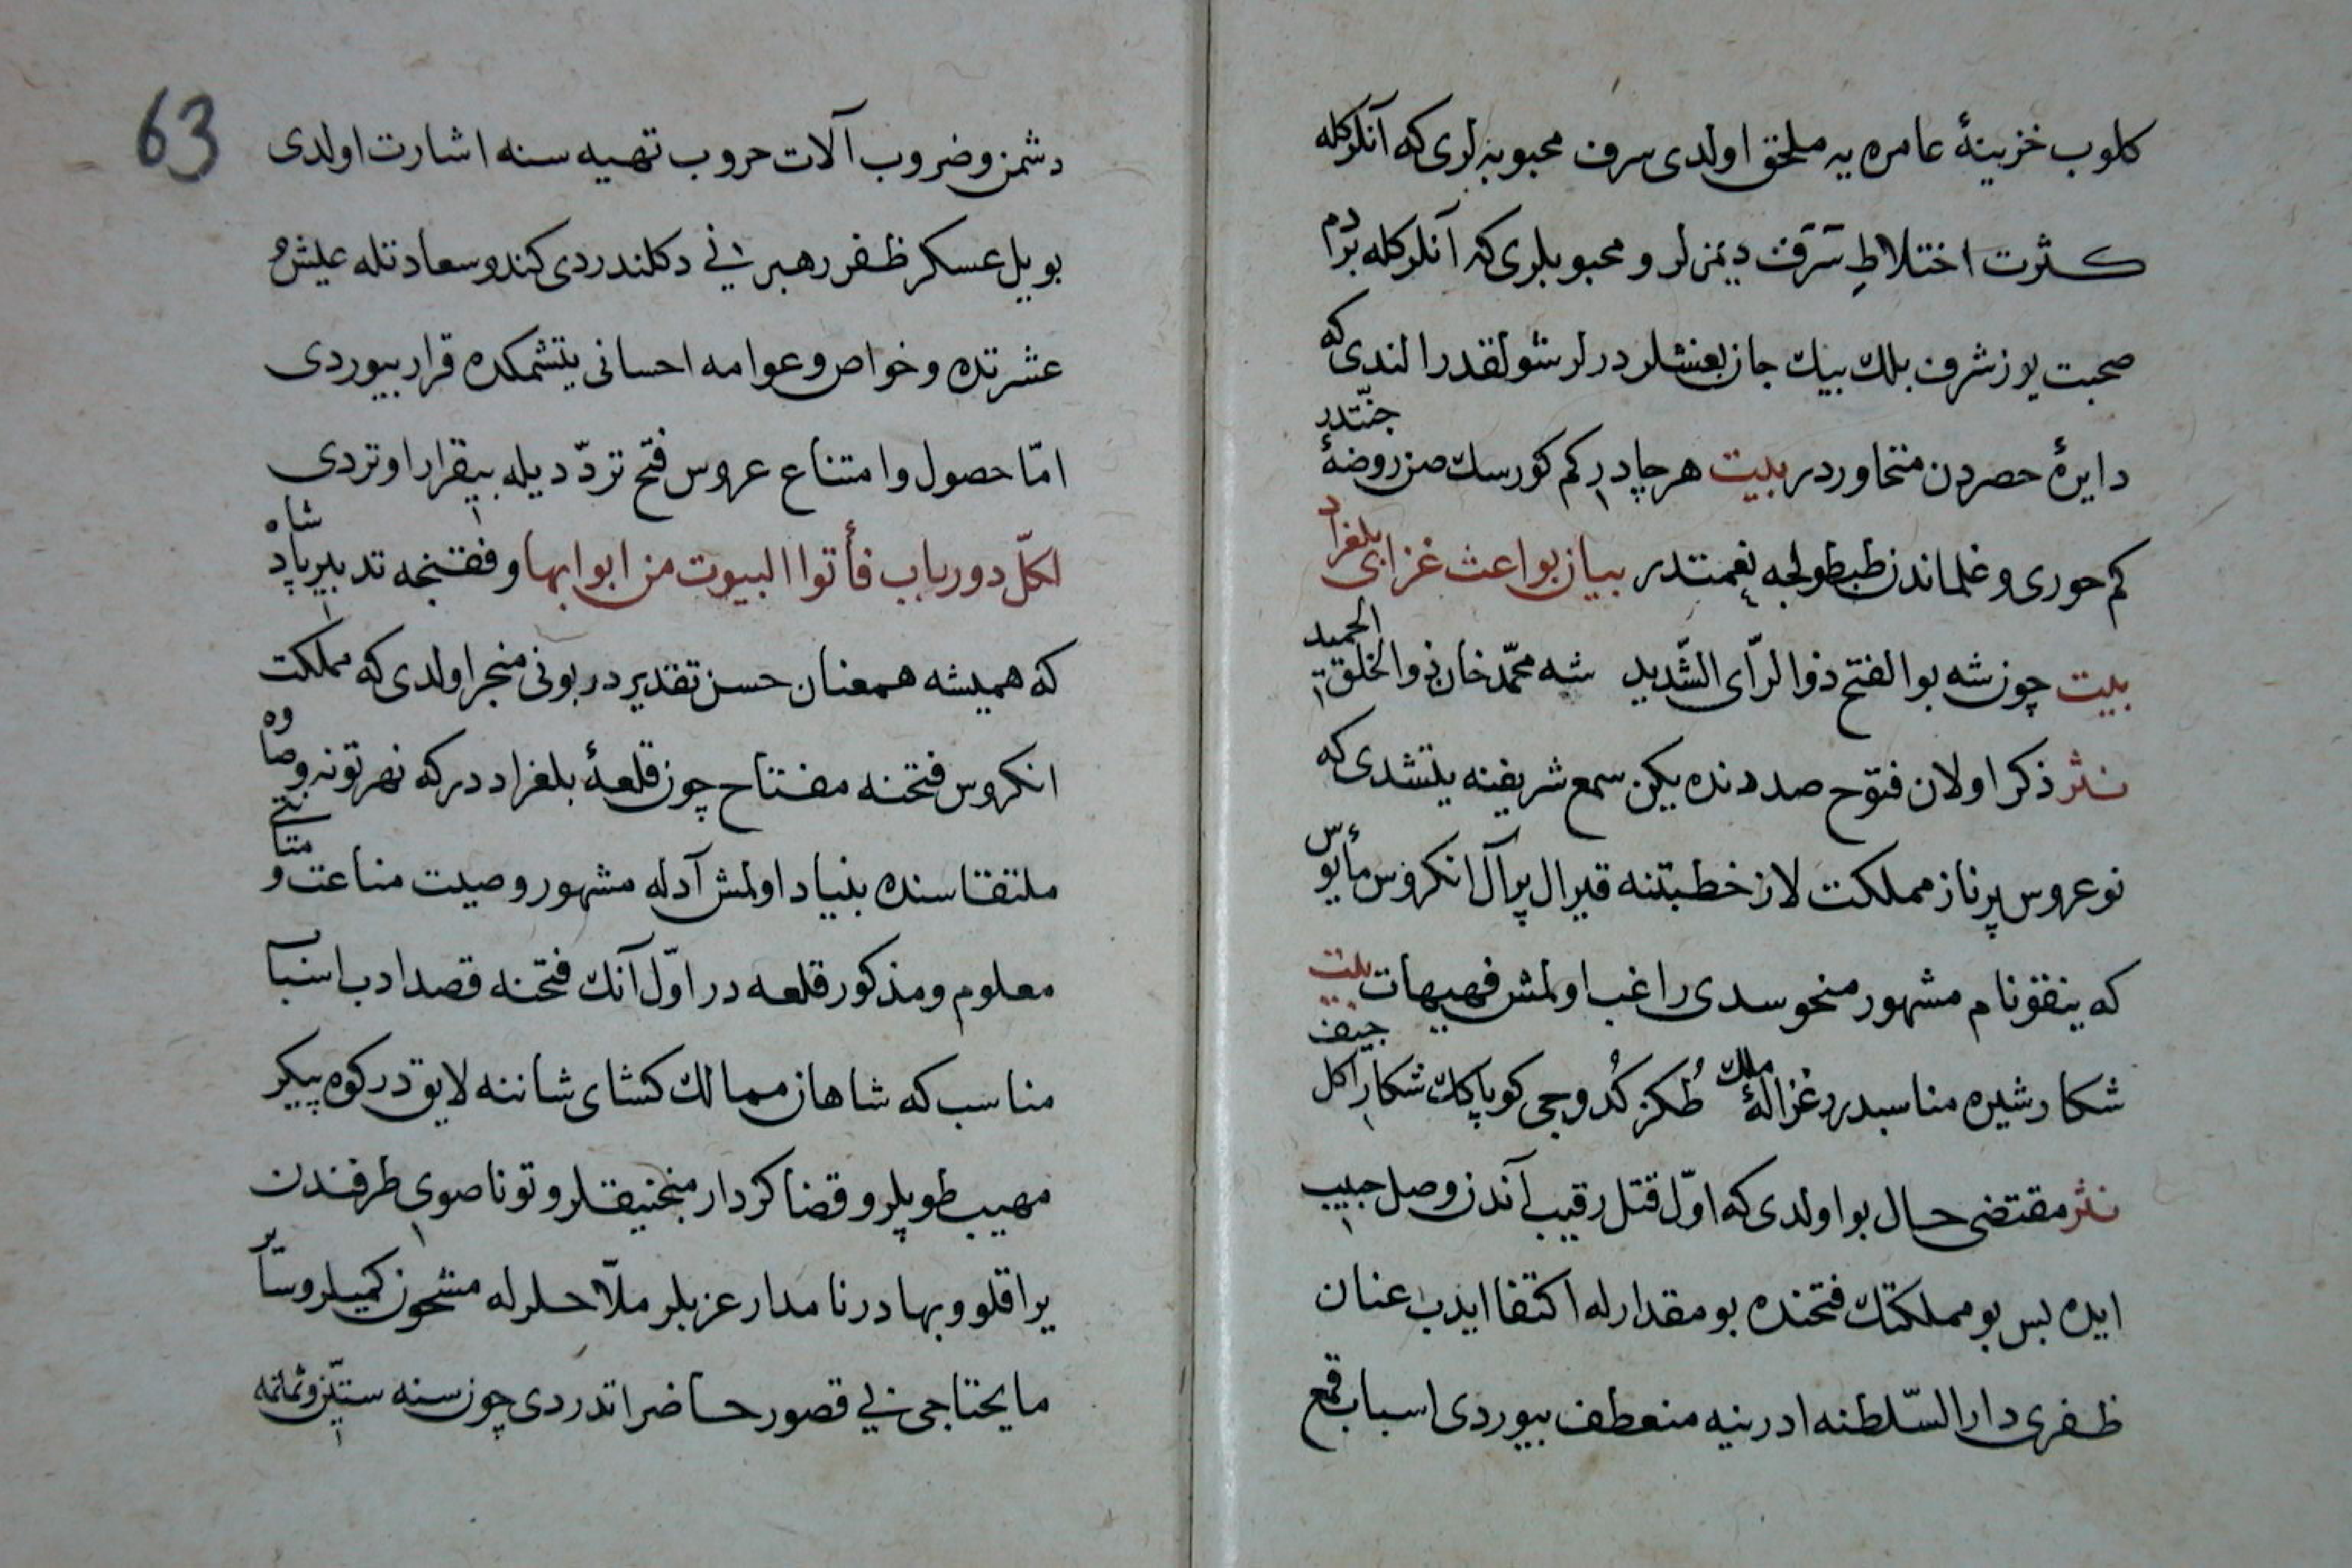 كلوب خزينهٔ عامره يه ملحق اولدى سرف محبوبه لرى كه آنلركله
كثرت اختلاطِ سَرَف ديمزلر و محبوبلرى كه آنلركله بردم
صحبت يوز شرف بلك بيك جان بغشلردرلر شولقدر الندى كه
دايرهٔ حصردن متجاوردر بيت هر چادر كم كورسك صن روضهٔ جنّتدر
كم حورى و غلماندن طبطولجه نعمتدر بيان بواعث غزاى بلغراد
بيت چون شه بو الفتح ذو الرّأى الشّديد شه محمّد خان ذو الخلق الحميد
نثر ذكر اولان فتوح صددنده يكن سمع شريفنه يتشدى كه
نو عروس پرناز مملكت لاز خطبتنه قيرال پر آل انكروس مأيوس
كه ينقو نام مشهور منحوسدى راغب اولمش فهيهات بيت
شكار شيره مناسبدر غزالهٔ ملك طُكز كُدوجى كوپاكك شكار اكل جيف
نثر مقتضى حال بو اولدى كه اوّل قتل رقيب آندن وصل حبيب
ايده بس بو مملكتك فتحنده بو مقدارله اكتفا ايدب عنان
ظفرى دار السّلطنه ادرنيه منعطف بيوردى اسباب قمع
63
دشمن و ضروب آلات حروب تهيه سنه اشارت اولدى
بو يل عسكر ظفر رهبرنى دكلندردى كندو سعادتله عيش و
عشرتده و خواص و عوامه احسانى يتشمكده قرار بيوردى
امّا حصول و امتناع عروس فتح تردّديله بيقرار اوتردى
لكلّ دور باب فأتوا البيوت من ابوابها وفقنجه تدبير پادشاه
كه هميشه همعنان حسن تقديردر بونى منجر اولدى كه مملكت
انكروس فتحنه مفتاح چون قلعهٔ بلغراددر كه نهر تونه و صاوه
ملتقاسنده بنياد اولمش آدله مشهور و صيت مناعت و متانتى
معلوم و مذكور قلعه در اوّل آنك فتحنه قصد ادب اسباب
مناسب كه شاهان ممالك كشاى شاننه لايقدر كوه پيكر
مهيب طوپلر و قضا كردار منجنيقلر و تونا صوى طرفندن
يراقلو و بهادر نامدار عزبلر ملّاحلرله مشحون كميلر و سائر
مايحتاجى بى قصور حاضر اتدردى چون سنه ستين و ثمانمائه